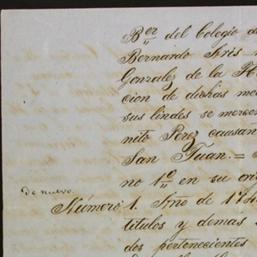 Ber del Colegio d
Bernardo Iris
Gonzalez de la
cion de dichas me
sus lindes se merce
nito Perez causan
San Juan.=
no 1º en su ori
de nuevo
Número 1. Año de 174
titulos y demas
dos pertenecientes